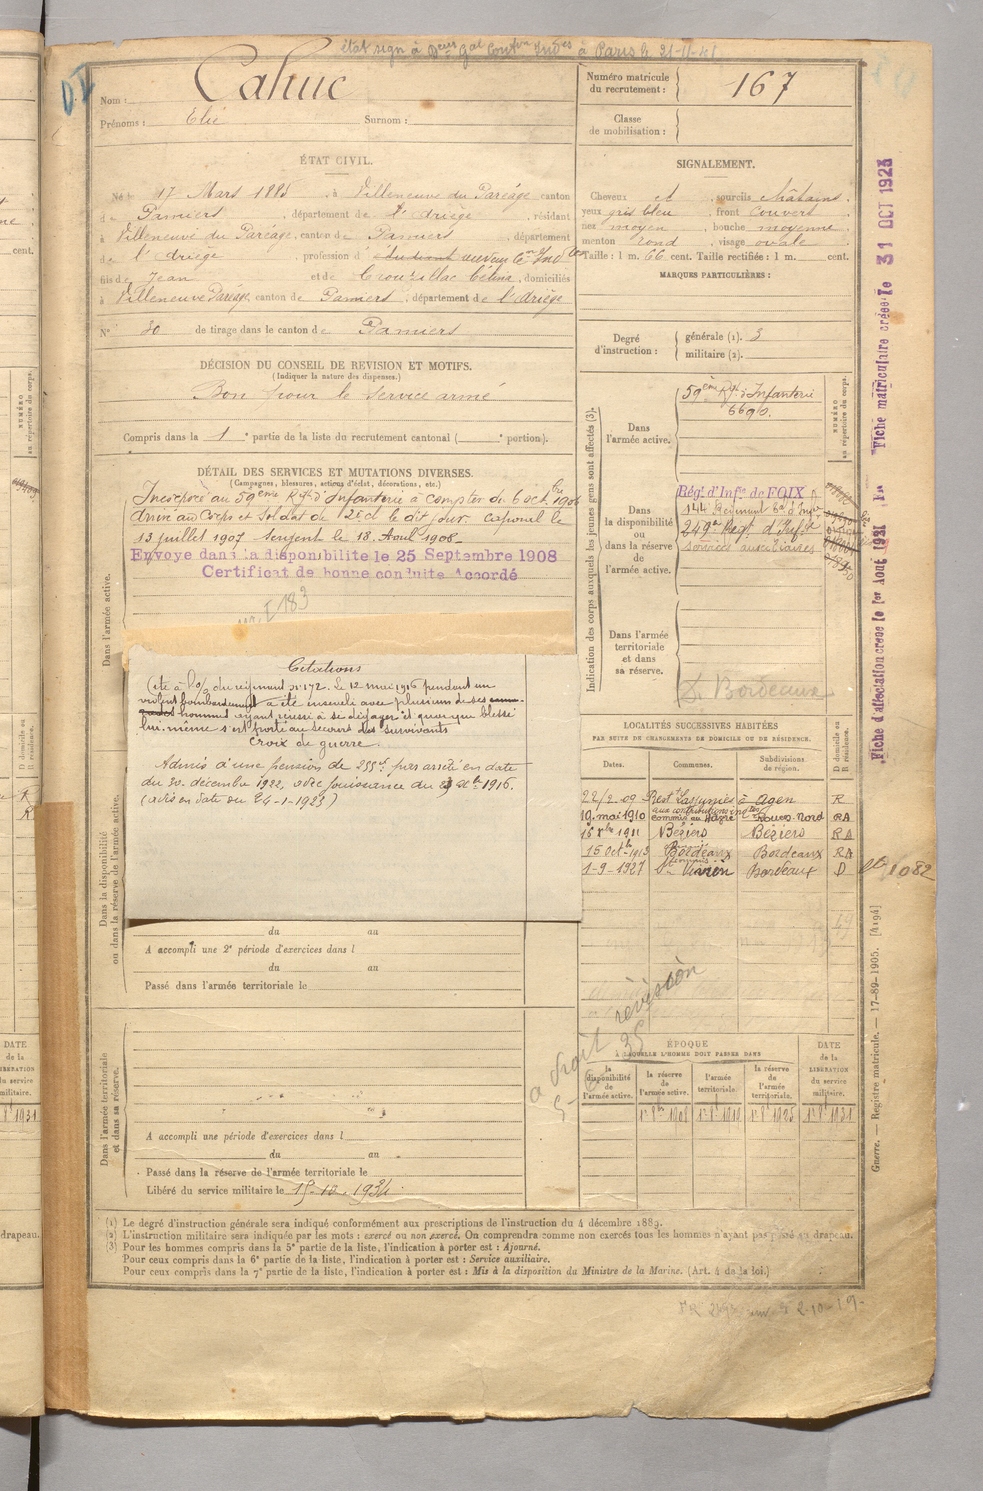 Nom : Cahuc
Prénoms : Elie Surnom :
Numéro matricule du recrutement : 167
Classe de mobilisation :
ÉTAT CIVIL.
Né le 17 Mars 1885, à Villeneuve du Paréage canton
de Pamiers, département de l'Ariège, résidant
à Villeneuve du Paréage, canton de Pamiers, département
de l'Ariège, profession d'étudiant
fils de Jean et de Crouzillac Célina, domiciliés
à Villeneuve Paréage, canton de Pamiers, département de l'Ariège
N° 30 de tirage dans le canton de Pamiers
SIGNALEMENT.
Cheveux et sourcils châtains.
yeux gris bleu front couvert
nez moyen bouche moyenne
menton rond, visage ovale
Taille : 1 m. 66 cent. Taille rectifiée : 1 m. cent.
MARQUES PARTICULIÈRES :
Degré d'instruction : générale (1). 3
militaire (2).
DÉCISION DU CONSEIL DE REVISION ET MOTIFS.
(Indiquer la nature des dispenses.)
Bon pour le service armé
Compris dans la 1e partie de la liste du recrutement cantonal ( e portion).
DÉTAIL DES SERVICES ET MUTATIONS DIVERSES.
(Campagnes, blessures, actions d'éclat, décorations, etc.)
Incorporé au 59ème Rgt d'Infanterie à compter du 6 octbre 1906
Arrivé au Corps et Soldat de 2e cl le dit jour. Caporal le
13 juillet 1907 Sergent le 18 Aout 1908
Envoye dans la disponibilite le 25 Septembre 1908
Certificat de bonne conduite Accordé
Citations
Cité à l'o/ du régiment n° 172. Le 12 mai 1916 pendant un
violent bombardement a été enseveli avec plusieurs de ses
hommes ayant réussi à se dégager et quoique blessé
lui-même s'est porté au secours des survivants
Croix de guerre.
Admis à une pension de 255f par arrêté en date
du 30 décembre 1922, avec jouissance du
(avis en date du 24-1-1923)
Dans l'armée active.
Dans la disponibilité ou dans la réserve de l'armée active.
du au
A accompli une 2e période d'exercices dans l
du au
Passé dans l'armée territoriale le
Dans l'armée territoriale et dans sa réserve.
A accompli une période d'exercices dans l
du au
Passé dans la réserve de l'armée territoriale le
Libéré du service militaire le 15-10-1934
Indication des corps auxquels les jeunes gens sont affectés (3).
NUMÉRO au répertoire du corps.
Dans l'armée active.
59ème Rgt d'Infanterie
6690.
Dans la disponibilité ou dans la réserve de l'armée active.
Régt d'Infie de FOIX
144 Régiment d'Infie
249e Régt d'Infie
services auxiliaires
Dans l'armée territoriale et dans sa réserve.
Bordeaux
LOCALITÉS SUCCESSIVES HABITÉES
PAR SUITE DE CHANGEMENTS DE DOMICILE OU DE RÉSIDENCE.
Dates. Communes. Subdivisions de région. D domicile ou R résidence.
22/2-09 Agen R
19 mai 1910 Rouen-Nord RA
1911 Béziers Béziers RA
16 Oct 1913 Bordeaux Bordeaux RA
1-9-1927 St Vivien Bordeaux D
a droit révision
ÉPOQUE
À LAQUELLE L'HOMME DOIT PASSER DANS
la disponibilité de l'armée active.
la réserve de l'armée active.
l'armée territoriale.
la réserve de l'armée territoriale.
DATE de la LIBÉRATION du service militaire.
(1) Le degré d'instruction générale sera indiqué conformément aux prescriptions de l'instruction du 4 décembre 1889.
(2) L'instruction militaire sera indiquée par les mots : exercé ou non exercé. On comprendra comme non exercés tous les hommes n'ayant pas passé au drapeau.
(3) Pour les hommes compris dans la 5e partie de la liste, l'indication à porter est : Ajourné.
Pour ceux compris dans la 6e partie de la liste, l'indication à porter est : Service auxiliaire.
Pour ceux compris dans la 7e partie de la liste, l'indication à porter est : Mis à la disposition du Ministre de la Marine. (Art. 4 de la loi.)
Fiche d'affectation creee le 1er Aout 1921
Fiche matriculaire créée le 31 OCT 1923
Guerre. — Registre matricule. — 17-89-1905. [4194]